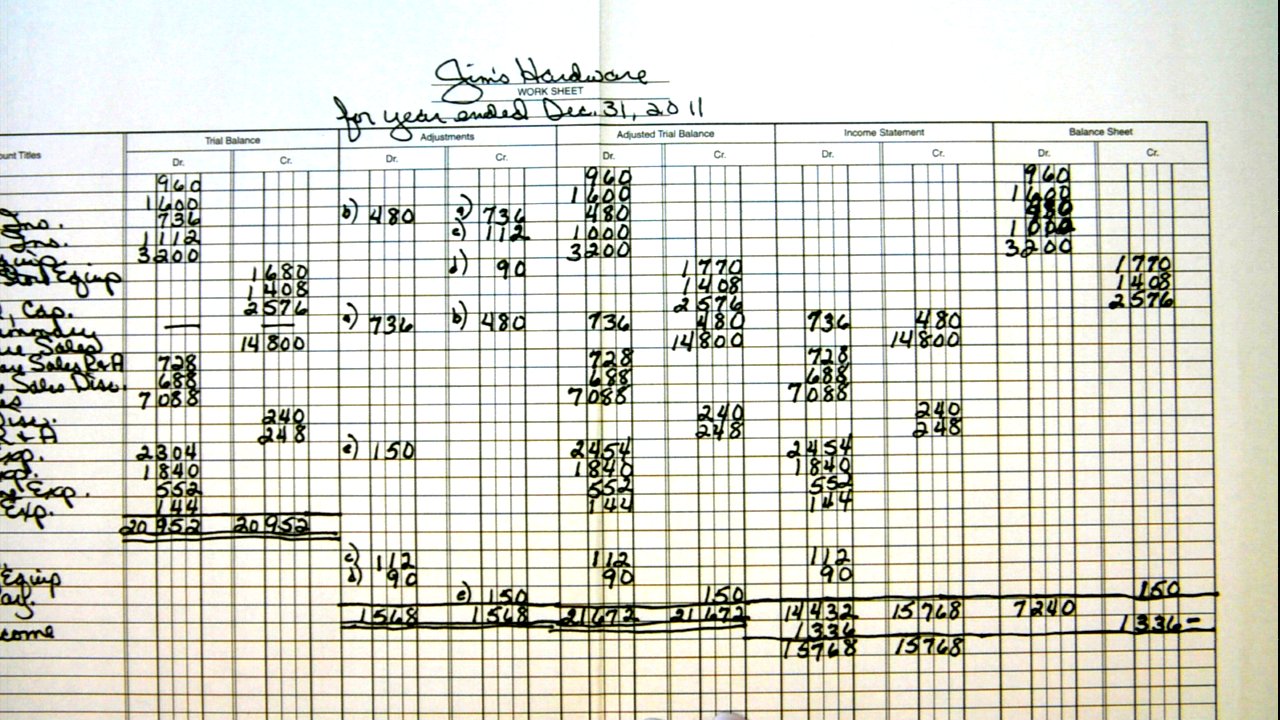 Jim's Hardware
WORK SHEET
for year ended Dec. 31, 2011
ount Titles Trial Balance Adjustments Adjusted Trial Balance Income Statement Balance Sheet
Dr. Cr. Dr. Cr. Dr. Cr. Dr. Cr. Dr. Cr.
960 960 960
1600 1600 1600
Ins. 736 b) 480 a) 736 480 480
Ins. 1112 c) 112 1000 1000
uip. 3200 3200 3200
Store Equip 1680 d) 90 1770 1770
1408 1408 1408
Cap. 2576 2576 2576
— — a) 736 b) 480 736 480 736 480
Sales 14800 14800 14800
Sales R&A 728 728 728
Sales Disc. 688 688 688
es 7088 7088 7088
Disc. 240 240 240
R & A 248 248 248
Exp. 2304 e) 150 2454 2454
xp. 1840 1840 1840
Exp. 552 552 552
Exp. 144 144 144
20952 20952
c) 112 112 112
Equip d) 90 90 90
ay. e) 150 150 150
1568 1568 21672 21672 14432 15768 7240
come 1336 1336-
15768 15768